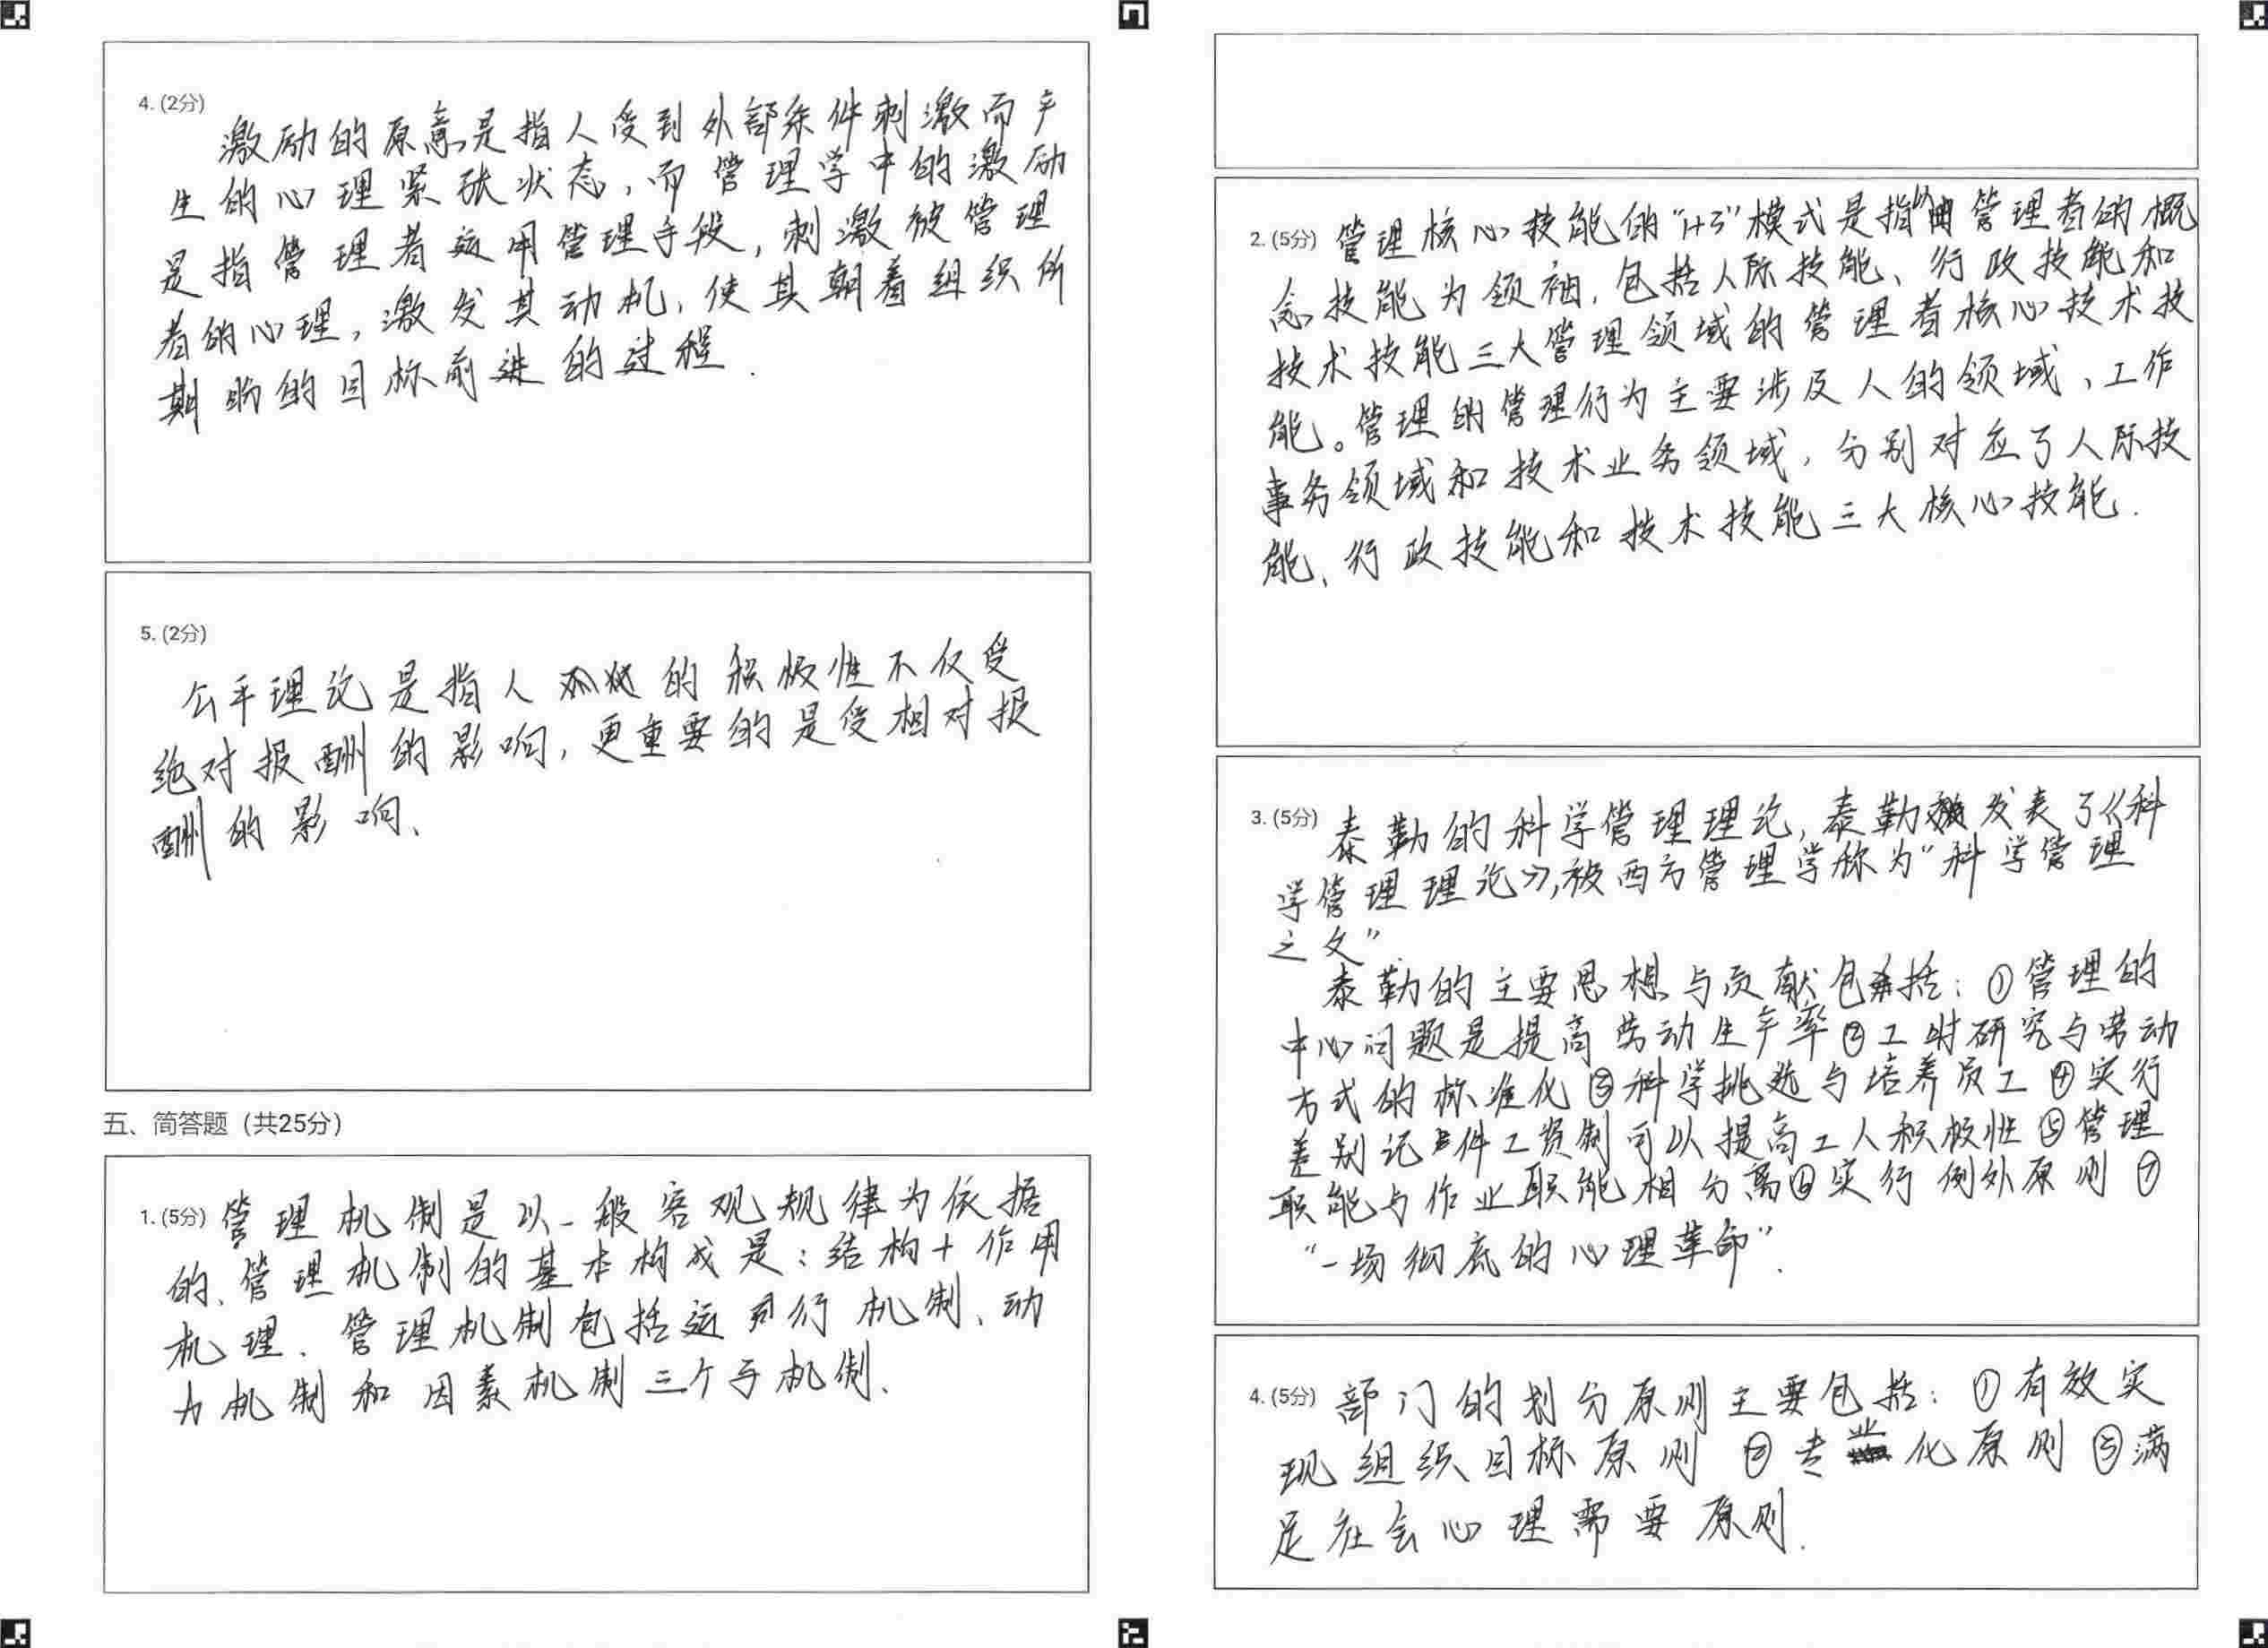 4. (2分)
激励的原意是指人受到外部条件刺激而产
生的心理紧张状态，而管理学中的激励
是指管理者运用管理手段，刺激被管理
者的心理，激发其动机，使其朝着组织所
期盼的目标前进的过程.
5. (2分)
公平理论是指人的积极性不仅受
绝对报酬的影响，更重要的是受相对报
酬的影响、
五、简答题（共25分）
1. (5分) 管理机制是以一般客观规律为依据
的、管理机制的基本构成是：结构+作用
机理. 管理机制包括运行机制、动
力机制和因素机制三个子机制、
2. (5分) 管理核心技能的“1+3”模式是指以由管理者的概
念技能为领袖，包括人际技能、行政技能和
技术技能三大管理领域的管理者核心技术技
能。管理的管理行为主要涉及人的领域、工作
事务领域和技术业务领域，分别对应了人际技
能、行政技能和技术技能三大核心技能.
3. (5分) 泰勒的科学管理理论，泰勒发表了《科
学管理理论》，被西方管理学称为“科学管理
之父”.
泰勒的主要思想与贡献包括：①管理的
中心问题是提高劳动生产率②工时研究与劳动
方式的标准化③科学挑选与培养员工④实行
差别记件工资制可以提高工人积极性⑤管理
职能与作业职能相分离⑥实行例外原则⑦
“一场彻底的心理革命”.
4. (5分) 部门的划分原则主要包括：①有效实
现组织目标原则 ②专业化原则 ③满
足社会心理需要原则.